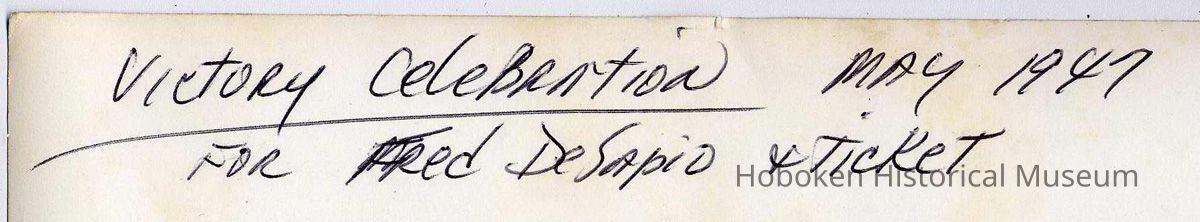 Victory Celebration May 1947
For Fred DeSapio & Ticket
Hoboken Historical Museum